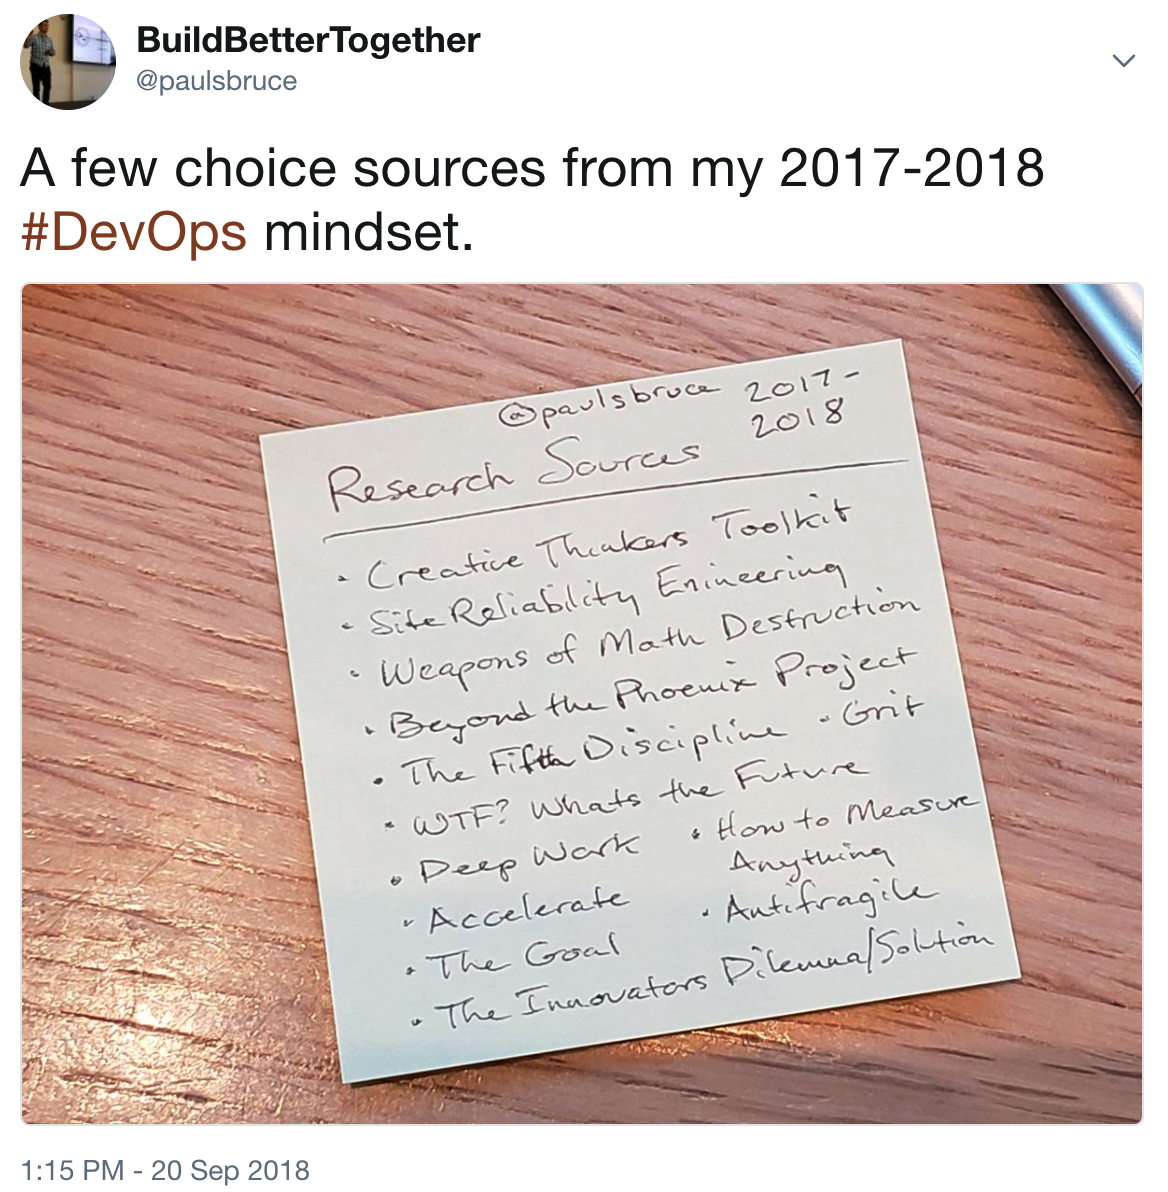 BuildBetterTogether
@paulsbruce
A few choice sources from my 2017-2018
#DevOps mindset.
@paulsbruce 2017-
2018
Research Sources
• Creative Thinkers Toolkit
• Site Reliability Enineering
• Weapons of Math Destruction
• Beyond the Phoenix Project
• The Fifth Discipline • Grit
• WTF? Whats the Future
• Deep Work • How to Measure
Anything
• Accelerate • Antifragile
• The Goal
• The Innovators Dilemma/Solution
1:15 PM - 20 Sep 2018